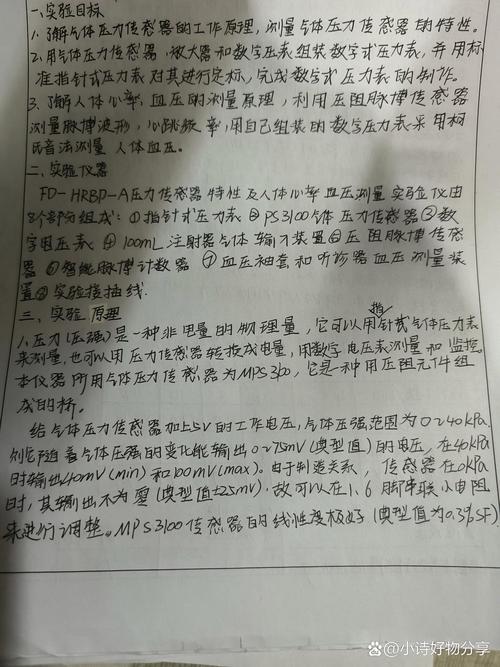 一、实验目标
1.了解气体压力传感器的工作原理,测量气体压力传感器的特性。
2.用气体压力传感器、放大器和数字压表组装数字式压力表,并用标
准指针式压力表对其进行定标,完成数字式压力表的制作。
3.了解人体心率、血压的测量原理,利用压阻脉搏传感器
测量脉搏波形,心跳频率,用自己组装的数字压力表采用柯
氏音法测量人体血压。
二、实验仪器
FD-HRBP-A压力传感器特性及人体心率血压测量实验仪由
8个部分组成:①指针式压力表②PS3100气体压力传感器③数
字电压表④100mL注射器气体输入装置⑤压阻脉搏传感
器⑥智能脉搏计数器⑦血压袖套和听诊器血压测量装
置⑧实验接插线.
三、实验原理
1.压力(压强)是一种非电量的物理量,它可以用指针式气体压力表
来测量,也可以用压力传感器转换成电量,用数字电压表测量和监控.
本仪器所用气体压力传感器为MPS3100,它是一种用压阻元件组
成的桥。
给气体压力传感器加上5V的工作电压,气体压强范围为0~40kPa,
则它随着气体压强的变化能输出0~75mV(典型值)的电压,在40kPa
时输出40mV(min)和100mV(max)。由于制造关系,传感器在0kPa
时,其输出不为零(典型值±25mV).故可以在1、6脚串联小电阻
来进行调整。MPS3100传感器的线性度极好(典型值为0.3%SF)
小诗好物分享